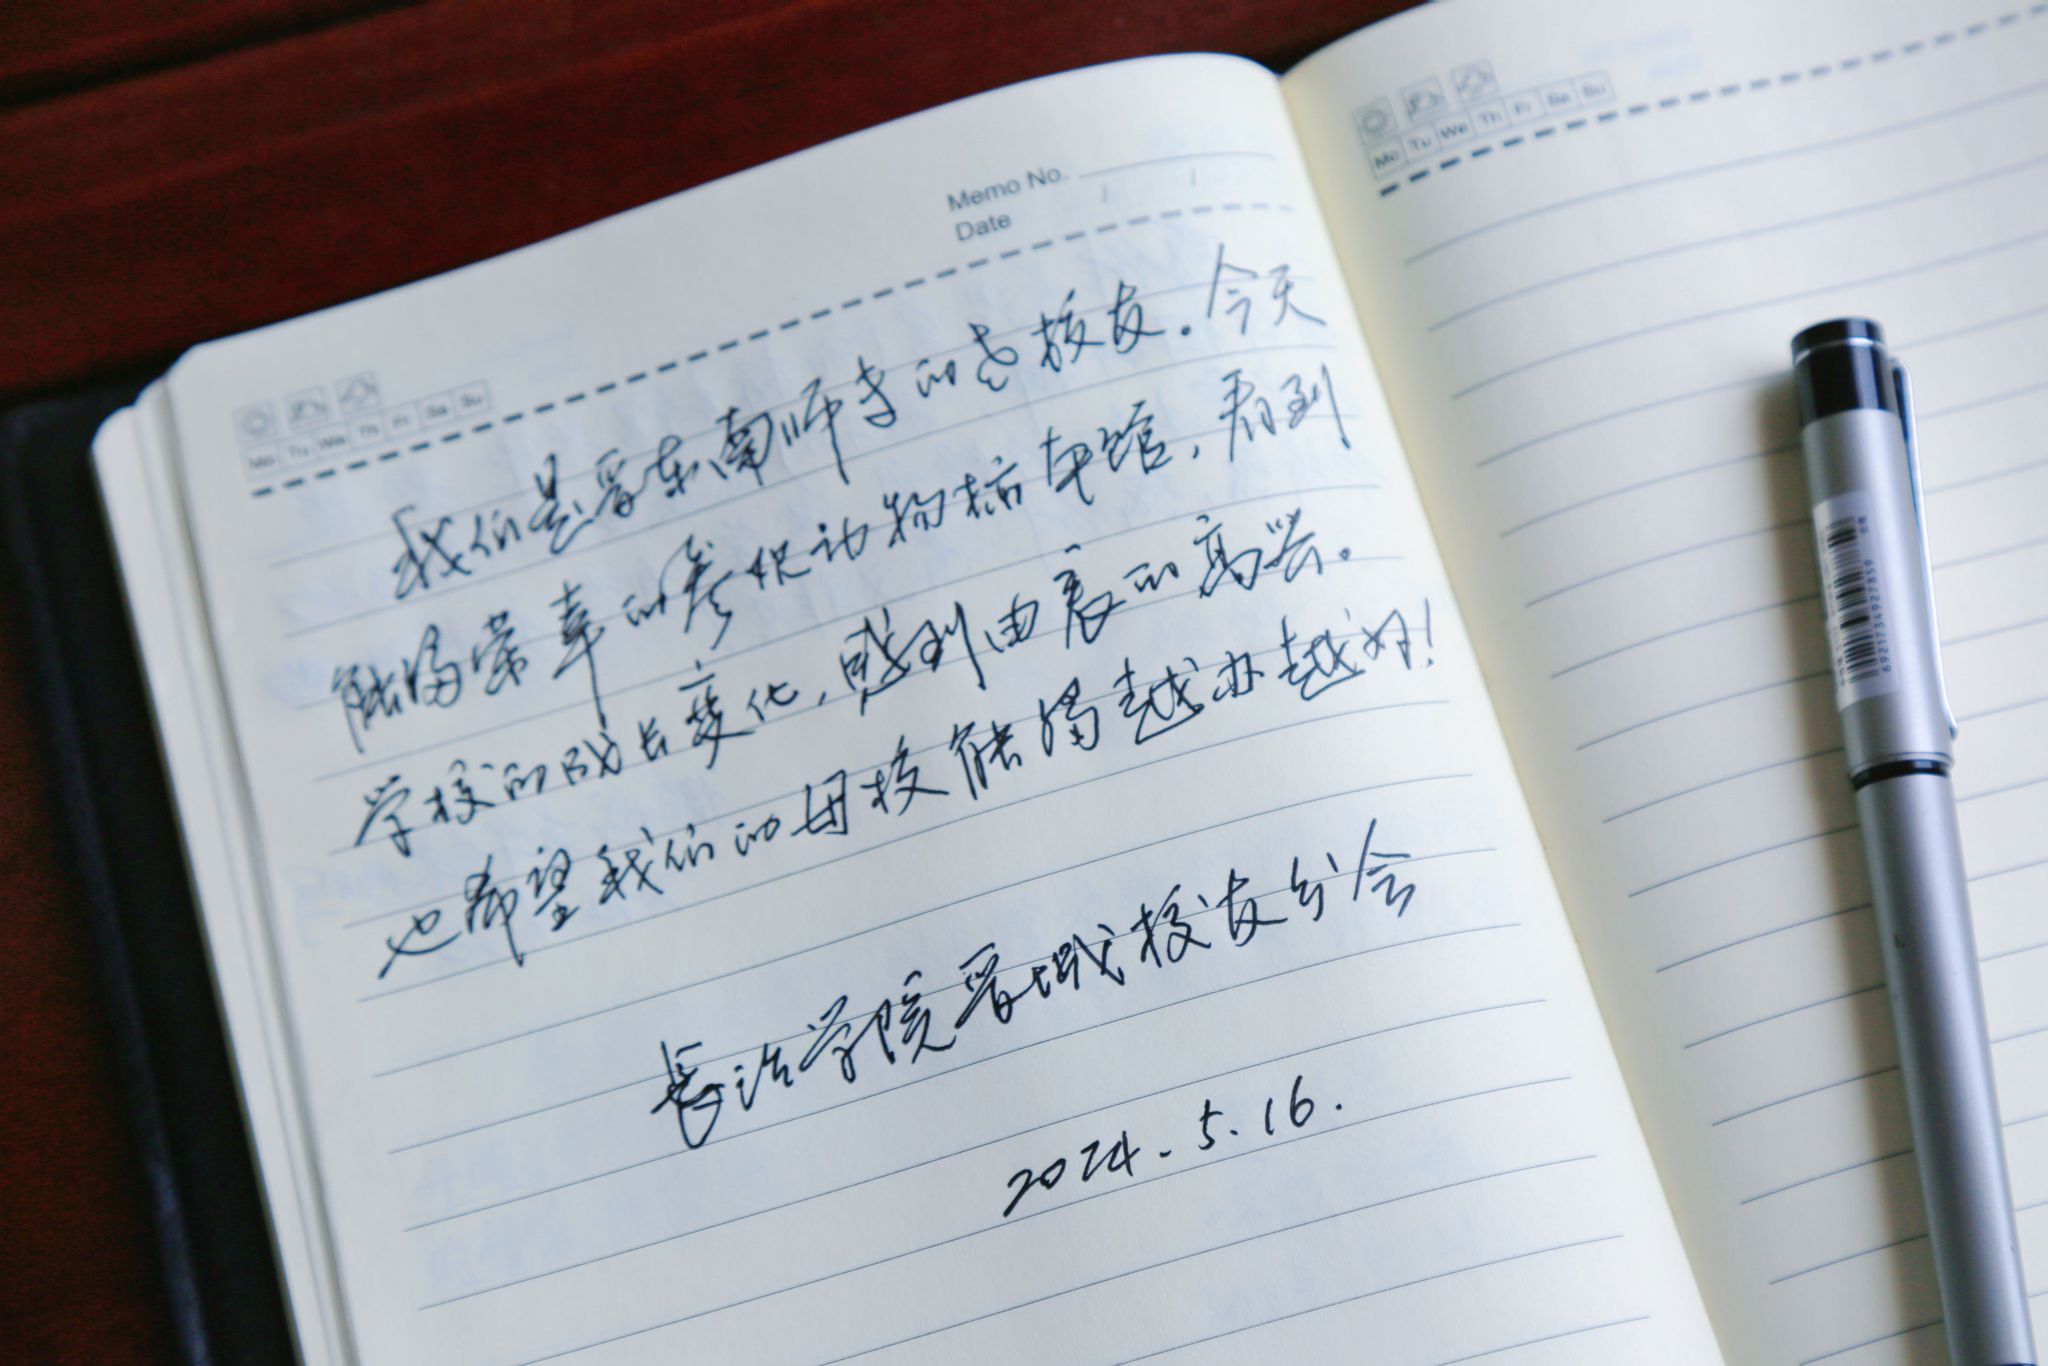 Memo No.
Date / /
Mo Tu We Th Fr Sa Su
我们是晋东南师专的老校友。今天
能够荣幸的参观动物标本馆，看到
学校的成长变化，感到由衷的高兴。
也希望我们的母校能够越办越好！
长治学院晋城校友分会
2024.5.16.
Mo Tu We Th Fr Sa Su
6921734927859